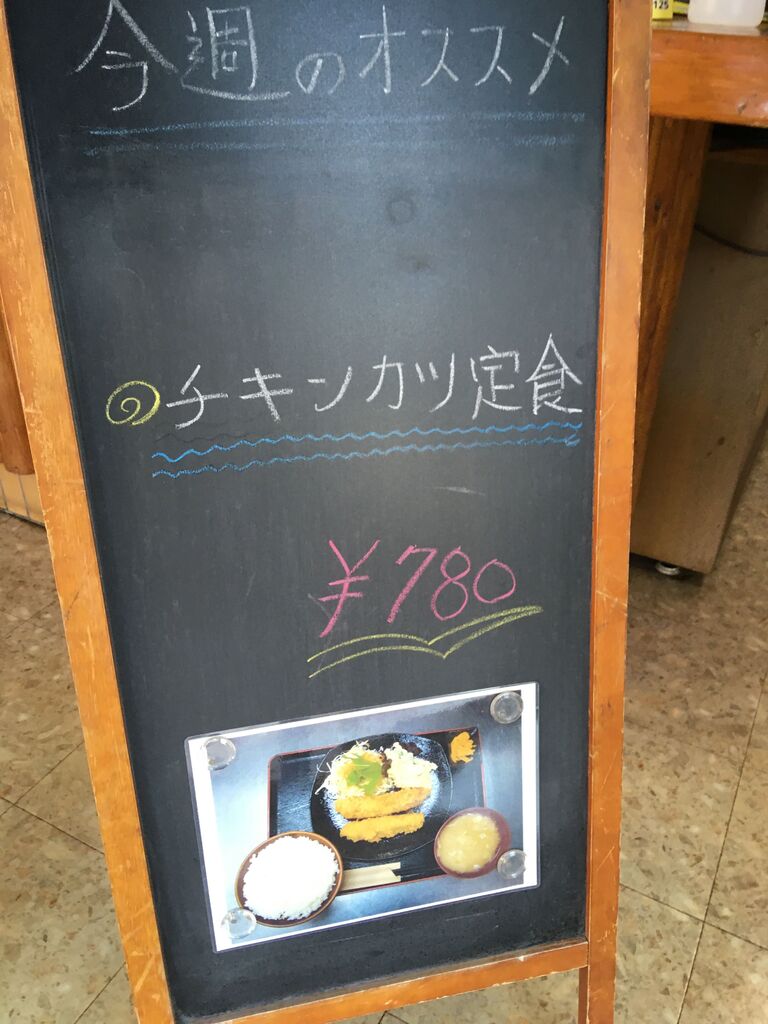 125
今週のオススメ
チキンカツ定食
¥780